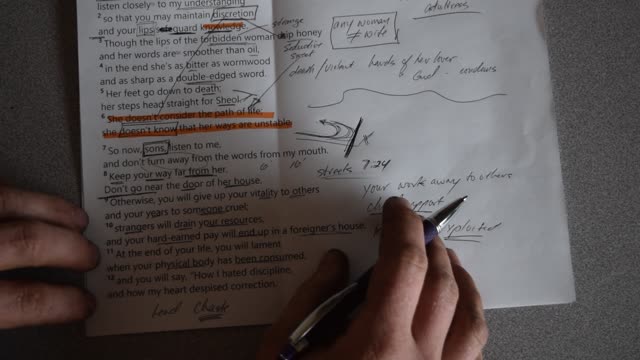 listen closely to my understanding
2 so that you may maintain discretion
and your lips guard knowledge.
3 Though the lips of the forbidden woman drip honey
and her words are smoother than oil,
4 in the end she's as bitter as wormwood
and as sharp as a double-edged sword.
5 Her feet go down to death;
her steps head straight for Sheol.
6 She doesn't consider the path of life;
she doesn't know that her ways are unstable.
7 So now, sons, listen to me,
and don't turn away from the words from my mouth.
8 Keep your way far from her.
Don't go near the door of her house.
9 Otherwise, you will give up your vitality to others
and your years to someone cruel;
10 strangers will drain your resources,
and your hard-earned pay will end up in a foreigner's house.
11 At the end of your life, you will lament
when your physical body has been consumed,
12 and you will say, "How I hated discipline,
and how my heart despised correction.
Lead Chaste
strange
seductive
any woman
≠ wife
death/violent hands of her lover
6' 10'
streets 7:24
your work away to others